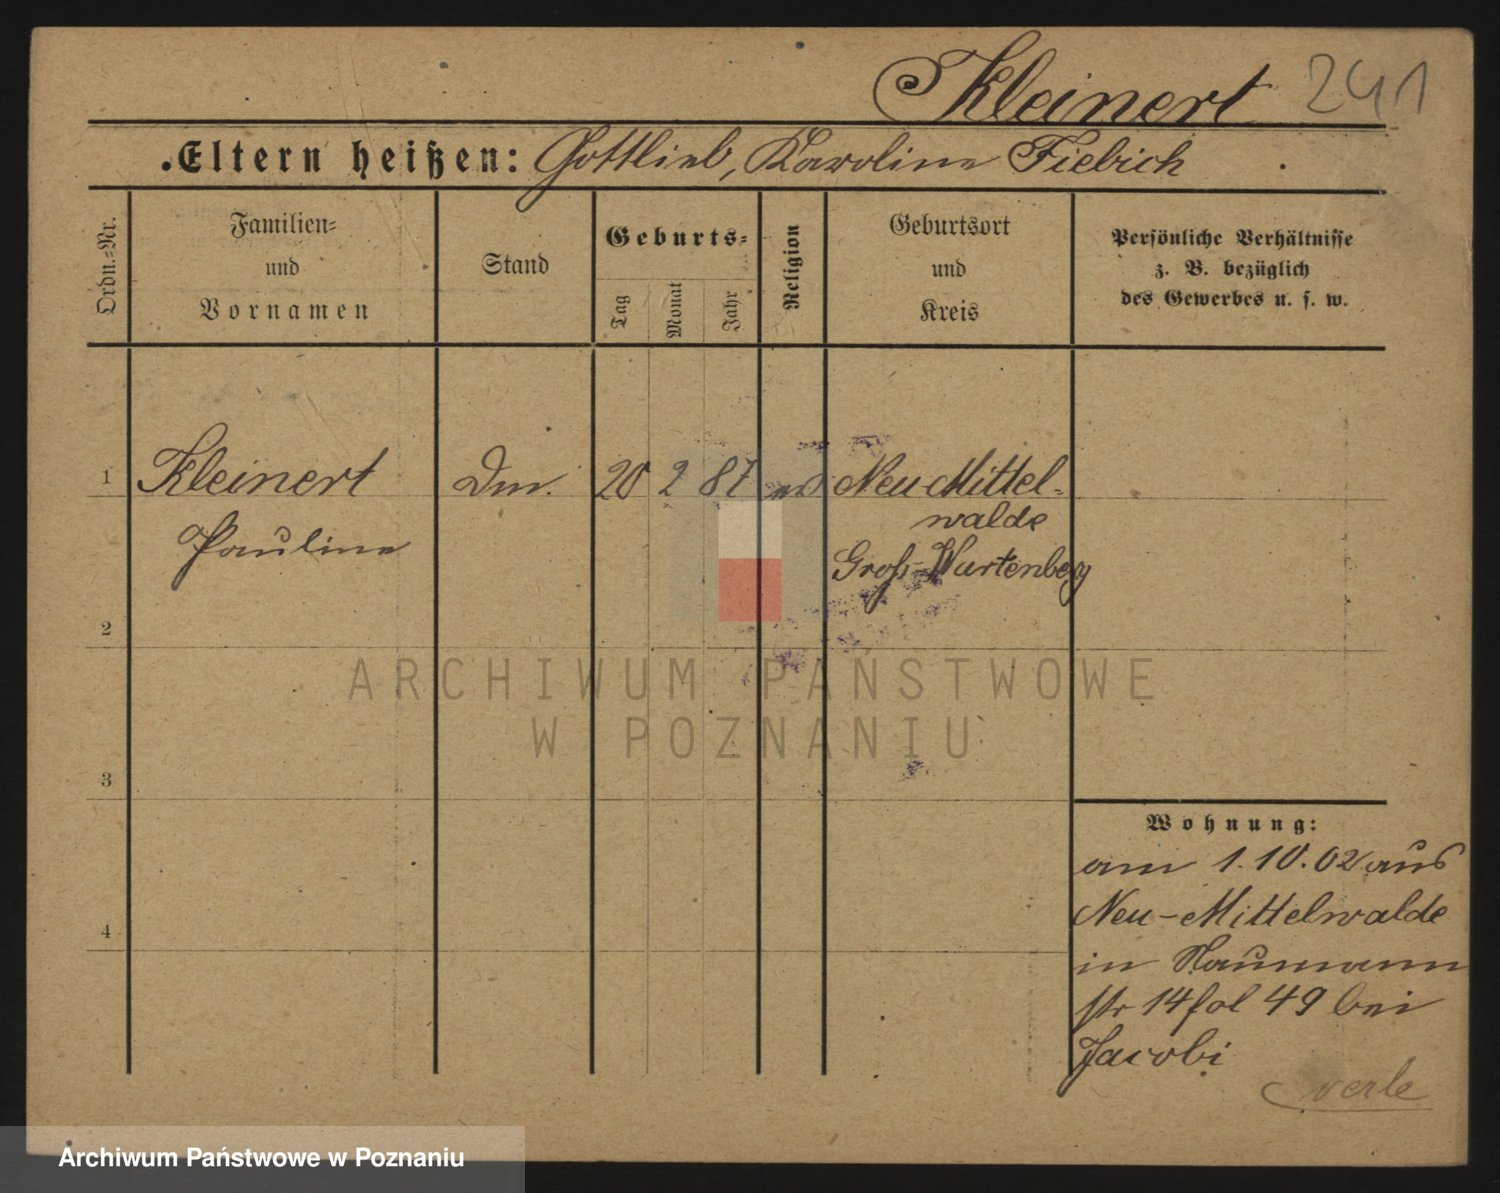 Kleinert 241
Eltern heißen: Gottlieb, Karoline Fiebich
Ordn.-Nr.
Familien-
und
Vornamen
Stand
Geburts-
Tag
Monat
Jahr
Religion
Geburtsort
und
Kreis
Persönliche Verhältnisse
z. B. bezüglich
des Gewerbes u. s. w.
1 Kleinert Dm. 20 2 87 ev Neu Mittel-
walde
Pauline Groß-Wartenberg
2
ARCHIWUM PAŃSTWOWE
W POZNANIU
3
Wohnung:
am 1.10.02 aus
Neu-Mittelwalde
4
in Naumann
str 14 fol 49 bei
Jacobi
Archiwum Państwowe w Poznaniu